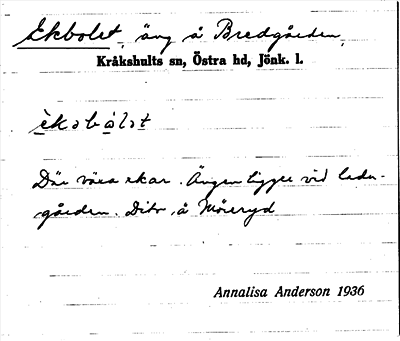 Ekbolet, äng å Bredgården,
Kråkshults sn, Östra hd, Jönk. l.
Där växa ekar. Ängen ligger vid ladu-
gården. Dito, å Möeryd
Annalisa Anderson 1936